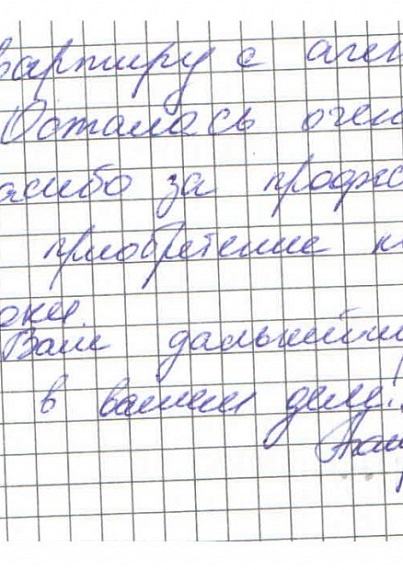 вартиру с аген
Осталась очен
асибо за профес
приобретение к
оки
Вам дальнейши
в вашем деле!